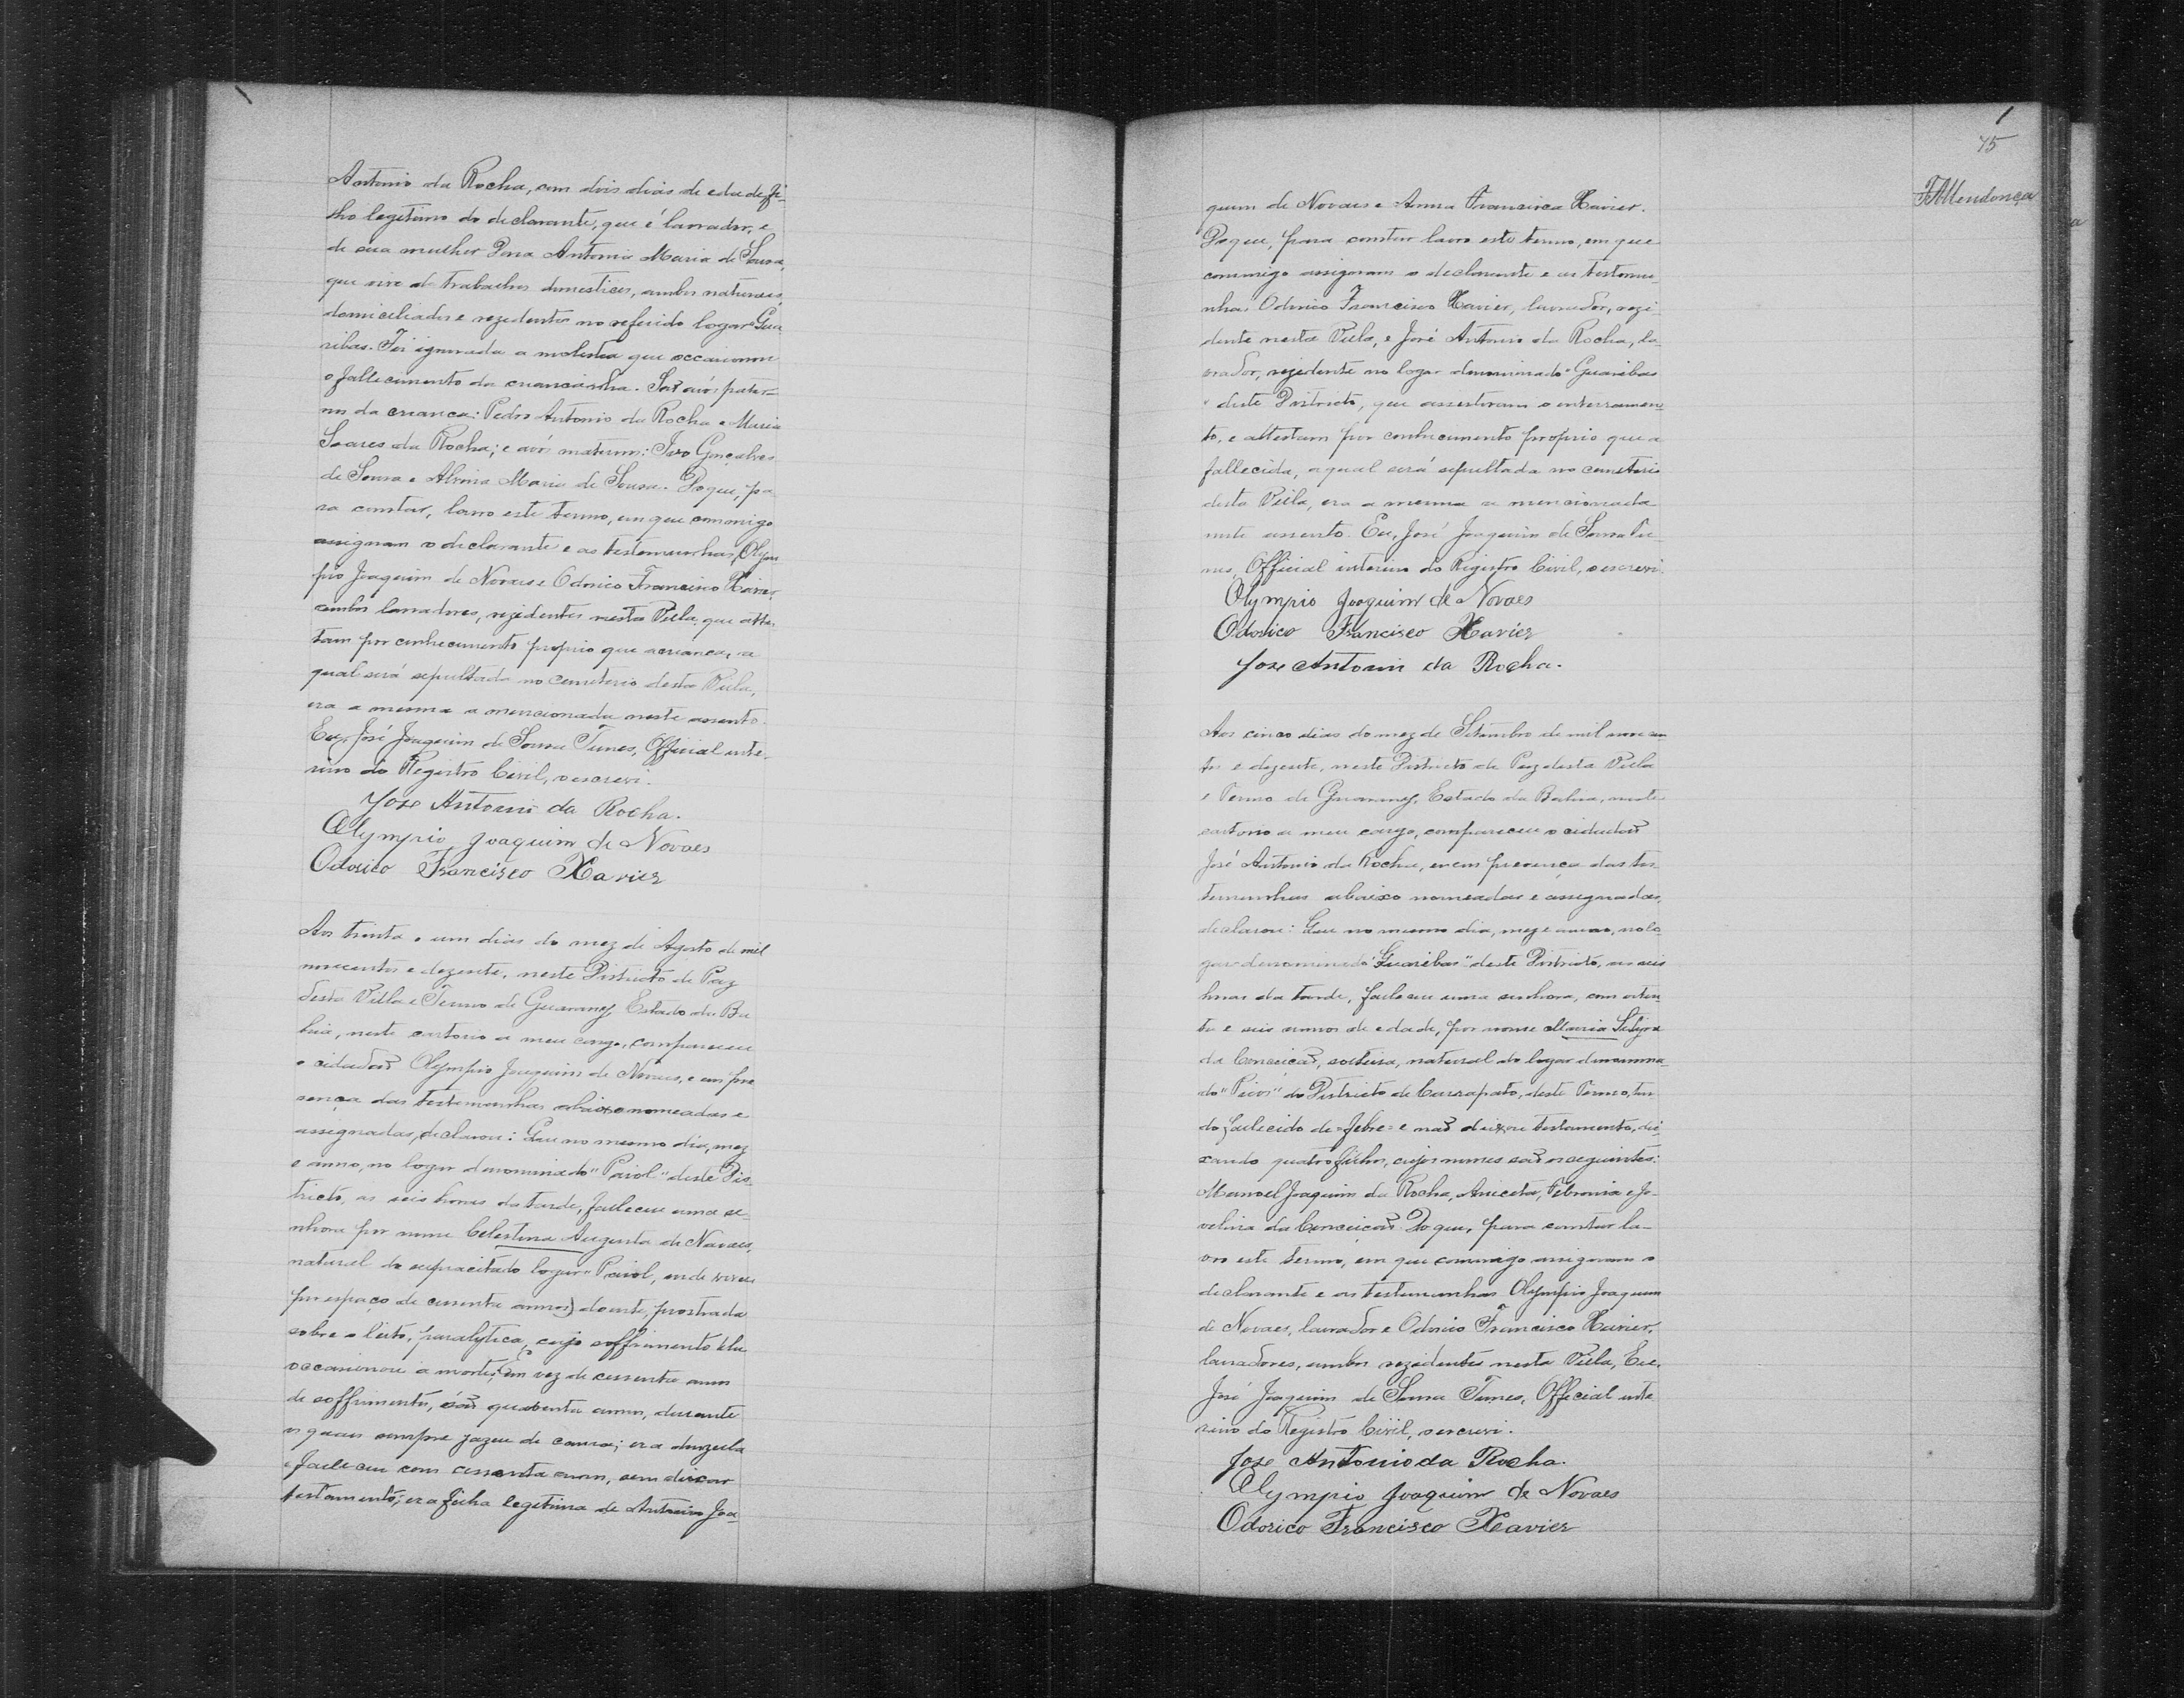 Antonio da Rocha, com dois dias de edade, fi-
lho legitimo do declarante, que é lavrador, e
de sua mulher Dona Antonia Maria de Sousa,
que vive de trabalhos domesticos, ambos naturaes,
domiciliados e rezidentes no referido logar Gua
ribas. Foi ignorada a molestia que occasionou
o fallecimento da criancinha. Saõ avós pater=
nos da criança: Pedro Antonio da Rocha e Maria
Soares da Rocha; e avós maternos: Ivo Gonçalves
de Sousa e Maria de Sousa. Do que, pa
ra constar, lavro este termo, em que commigo
assignam o declarante e as testemunhas, Olym
pio Joaquim de Novaes e Odorico Francisco Xavier,
ambos lavradores, rezidentes nesta Villa, que attes
tam por conhecimento proprio que a criança, a
qual será sepultada no cemeterio desta Villa,
era a mesma a mencionada neste assento.
Eu, José Joaquim de Sousa Tunes, Official inte-
rino do Registro Civil, o escrevi.
Jose Antonio da Rocha.
Olympio Joaquim de Novaes
Odorico Francisco Xavier
Aos trinta e um dias do mez de Agosto de mil
novecentos e dezesete, neste Districto de Paz
desta Villa e Termo de Guarany, Estado da Ba
hia, neste cartorio a meu cargo, compareceu
o cidadaõ Olympio Joaquim de Novaes, e em pre
sença das testemunhas abaixo nomeadas e
assignadas, declarou: Que no mesmo dia, mez
e anno, no logar denominado "Paiol" deste Dis-
tricto, as seis horas da tarde, falleceu uma se-
nhora por nome Celestina Augusta de Novaes,
natural do supracitado logar "Paiol, onde viveu
por espaço de cessenta annos) doente, prostrada
sobre o leito, paralytica, cujo soffrimento lhe
occasionou a morte; em vez de cessenta annos
de soffrimento, saõ quarenta annos, durante
os quaes sempre jazeu de cama; era donzella
e falleceu com cessenta annos, sem deixar
testamento; era filha legitima de Antonio Joa-
75
FAMendonça
quim de Novaes e Anna Francisca Xavier.
Do que, para constar lavro este termo, em que
commigo assignam o declarante e as testemu-
nhas Odorico Francisco Xavier, lavrador, rezi-
dente nesta Villa, e José Antonio da Rocha, la-
vrador, rezidente no logar denominado "Guaribas
" deste Districto, que assistiram o enterramen-
to, e attestam por conhecimento proprio que a
fallecida, a qual será sepultada no cemeterio
desta Villa, era a mesma a mencionada
neste assento. Eu, José Joaquim de Sousa Tu-
nes, Official interino do Registro Civil, o escrevi.
Olympio Joaquim de Novaes
Odorico Francisco Xavier
Jose Antonio da Rocha.
Aos cinco dias do mez de Setembro de mil novecen
tos e dezesete, neste Districto de Paz desta Villa
e Termo de Guarany, Estado da Bahia, neste
cartorio a meu cargo, compareceu o cidadaõ
José Antonio da Rocha, e em presença das tes-
temunhas abaixo nomeadas e assignadas,
declarou: Que no mesmo dia, mez e anno, no lo-
gar denominado "Guaribas" deste Districto, as seis
horas da tarde, falleceu uma senhora, com oiten-
ta e seis annos de edade, por nome Maria
da Conceiçaõ, solteira, natural do logar denomina-
do do Districto de Carrapato, deste Termo, ten
do fallecido de =febre= e naõ deixou testamento, dei-
xando quatro filhos, cujos nomes saõ os seguintes:
Manoel Joaquim da Rocha, Aniceta, Febronia e Jo-
velina da Conceiçaõ. Do que, para constar la-
vro este termo, em que commigo assignam o
declarante e as testemunhas Olympio Joaquim
de Novaes, lavrador e Odorico Francisco Xavier,
lavradores, ambos rezidentes nesta Villa, Eu,
José Joaquim de Sousa Tunes, Official inte
rino do Registro Civil, o escrevi.
Jose Antonio da Rocha.
Olympio Joaquim de Novaes
Odorico Francisco Xavier